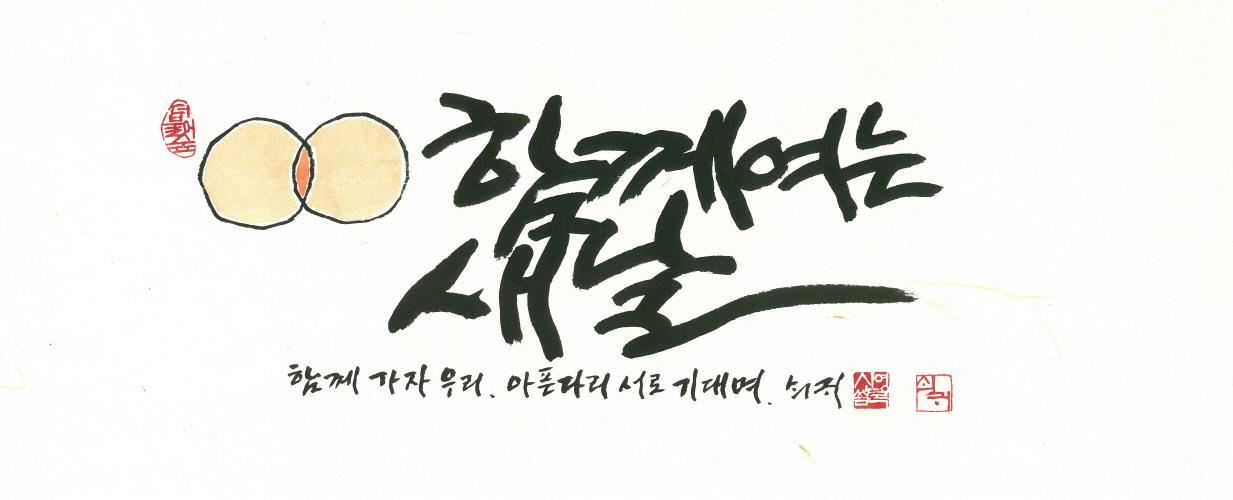 함께여는
새날
함께 가자 우리. 아픈다리 서로 기대며.